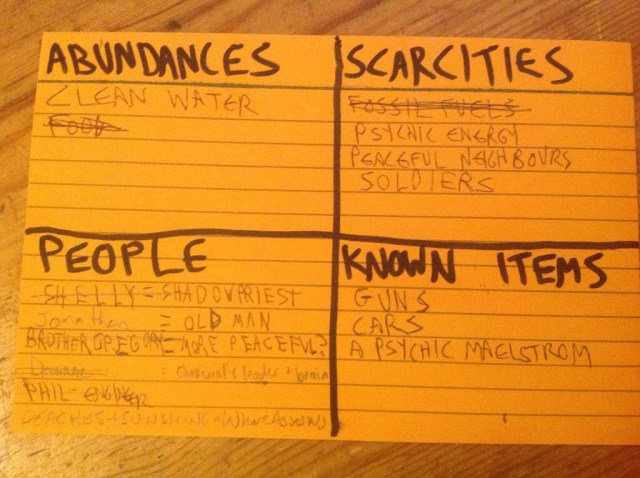 ABUNDANCES
CLEAN WATER
FOOD
SCARCITIES
FOSSIL FUELS
PSYCHIC ENERGY
PEACEFUL NEIGHBOURS
SOLDIERS
PEOPLE
SHELLY = SHADOWPRIEST
Jonathan = OLD MAN
BROTHER GREGORY = MORE PEACEFUL?
: charismatic leader + brain
PHIL - ENGINEER
PEACHES + SUNSHINE =
KNOWN ITEMS
GUNS
CARS
A PSYCHIC MAELSTROM